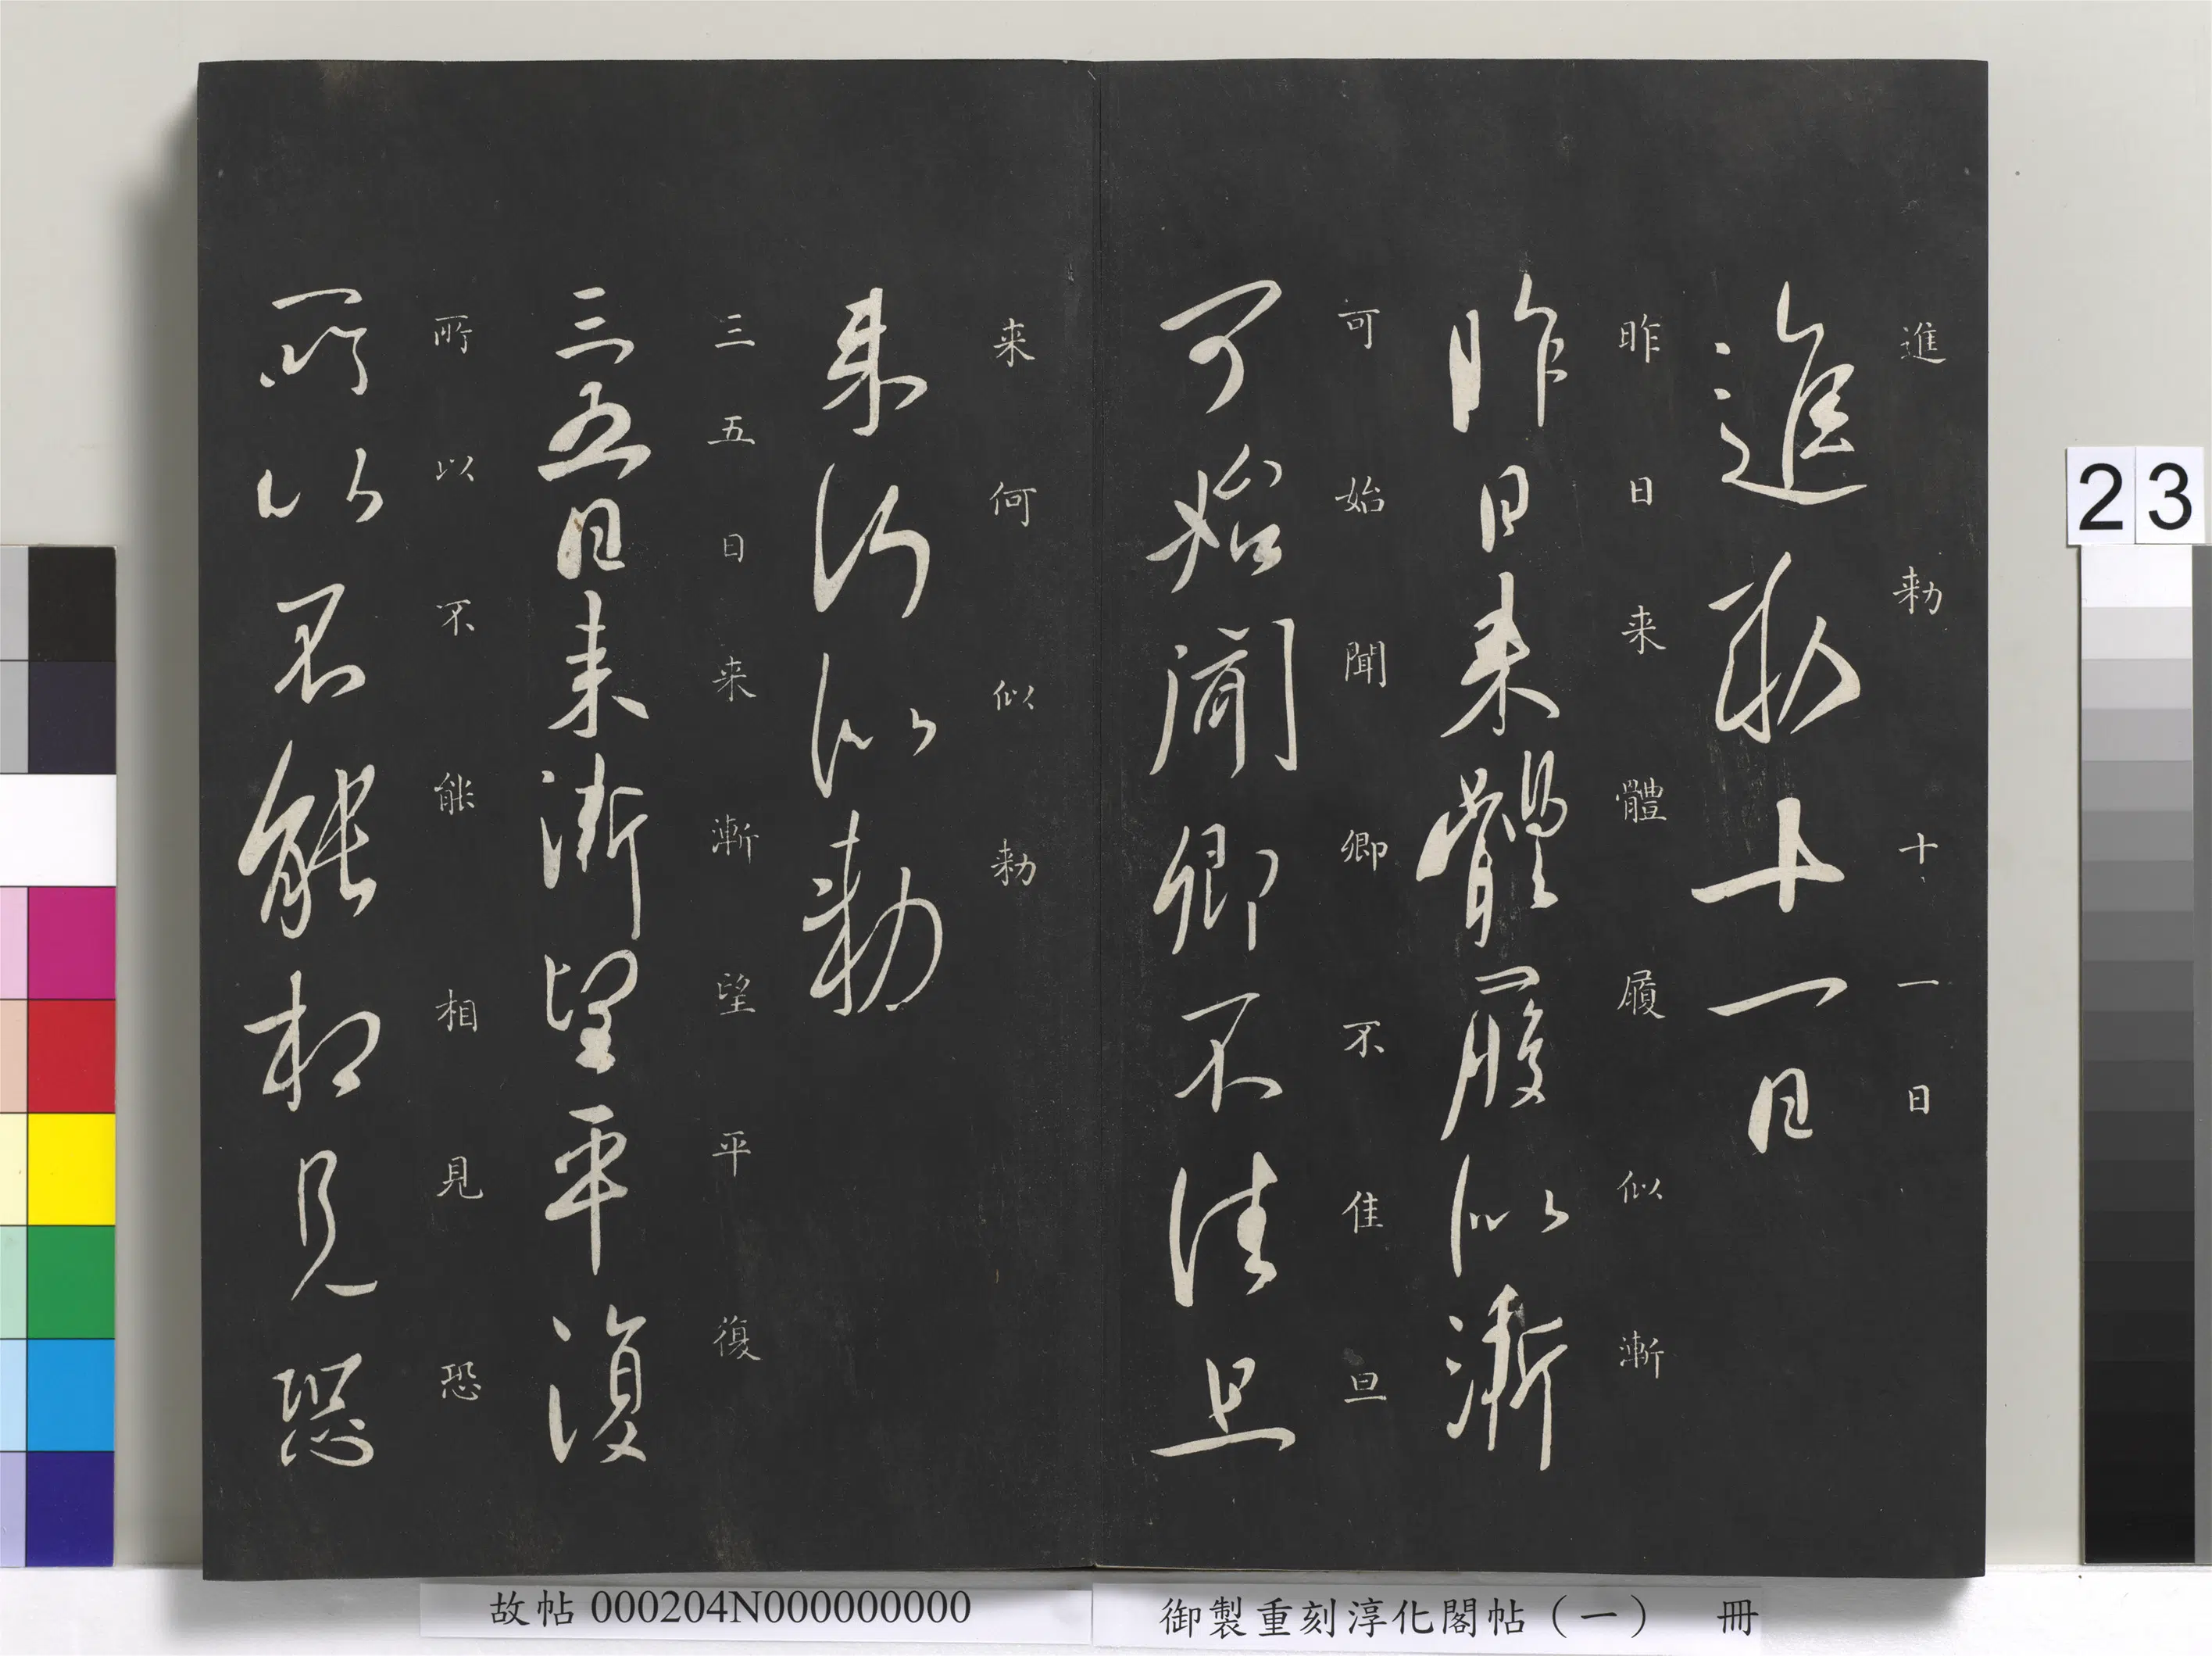 進
勑
十一日
進勑十一日
昨日来體履似漸
昨日来體履似漸
可始聞卿不佳旦
可始聞卿不佳旦
来何似勑
来何似勑
三五日来漸望平復
三五日来漸望平復
所以不能相見恐
所以不能相見恐
23
御製重刻淳化閣帖（一） 冊
故帖 000204N000000000